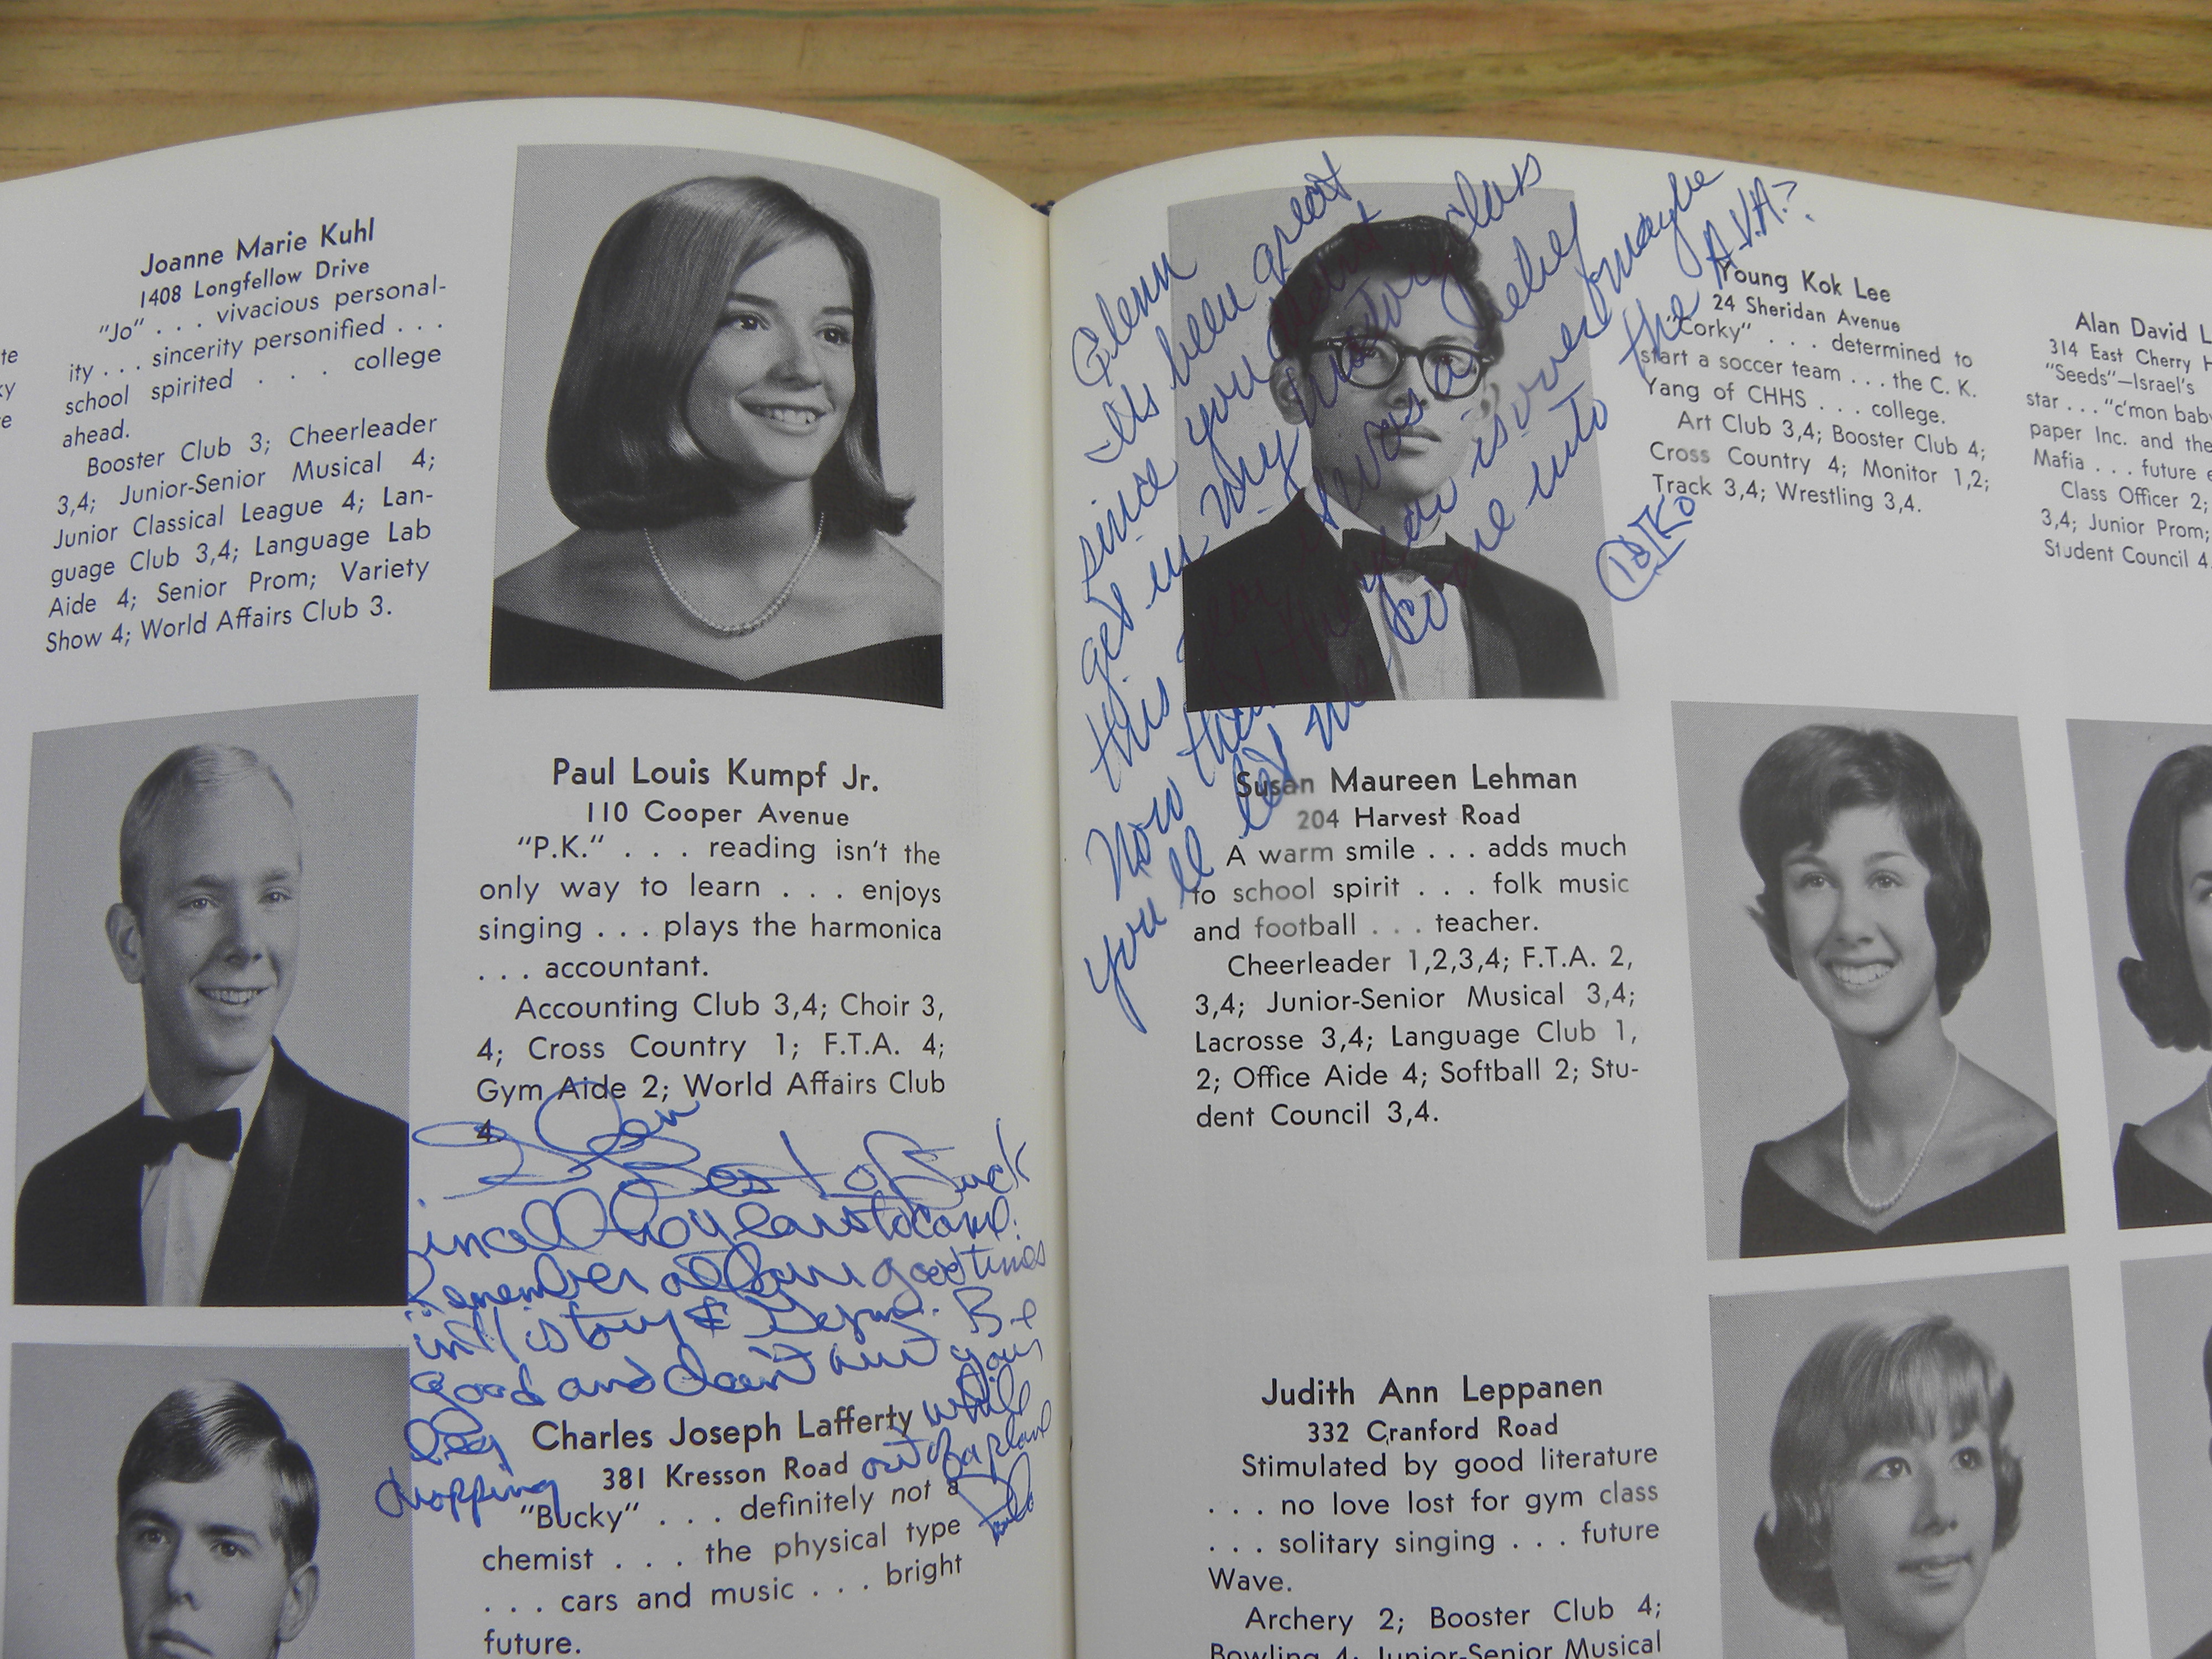 te
ky
re
Joanne Marie Kuhl
1408 Longfellow Drive
"Jo" . . . vivacious personal-
ity . . . sincerity personified . . .
school spirited . . . college
ahead.
Booster Club 3; Cheerleader
3,4; Junior-Senior Musical 4;
Junior Classical League 4; Lan-
guage Club 3,4; Language Lab
Aide 4; Senior Prom; Variety
Show 4; World Affairs Club 3.
Paul Louis Kumpf Jr.
110 Cooper Avenue
"P.K." . . . reading isn't the
only way to learn . . . enjoys
singing . . . plays the harmonica
. . . accountant.
Accounting Club 3,4; Choir 3,
4; Cross Country 1; F.T.A. 4;
Gym Aide 2; World Affairs Club
4.
Glen
Best of luck
in all the years to come.
Remember all our good times
in History &
good and don't your
leg while
out of a plane
Charles Joseph Lafferty
381 Kresson Road
"Bucky" . . . definitely not a
chemist . . . the physical type
. . . cars and music . . . bright
future.
Glenn
It's been great
since you
get in my history class
this
Now that the year is over maybe
you'll let me come into the A.V.A.?
Young Kok Lee
24 Sheridan Avenue
"Corky" . . . determined to
start a soccer team . . . the C. K.
Yang of CHHS . . . college.
Art Club 3,4; Booster Club 4;
Cross Country 4; Monitor 1,2;
Track 3,4; Wrestling 3,4.
Alan David L
314 East Cherry H
"Seeds"—Israel's
star . . . "c'mon bab
paper Inc. and the
Mafia . . . future e
Class Officer 2;
3,4; Junior Prom;
Student Council 4
Susan Maureen Lehman
204 Harvest Road
A warm smile . . . adds much
to school spirit . . . folk music
and football . . . teacher.
Cheerleader 1,2,3,4; F.T.A. 2,
3,4; Junior-Senior Musical 3,4;
Lacrosse 3,4; Language Club 1,
2; Office Aide 4; Softball 2; Stu-
dent Council 3,4.
Judith Ann Leppanen
332 Cranford Road
Stimulated by good literature
. . . no love lost for gym class
. . . solitary singing . . . future
Wave.
Archery 2; Booster Club 4;
Bowling 4; Junior-Senior Musical